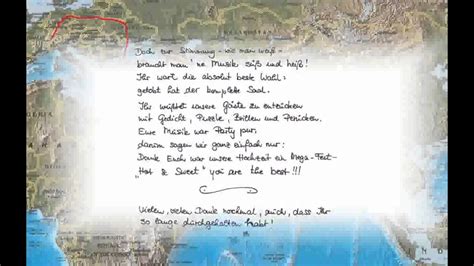 Doch zur Stimmung - wie man weiß -
braucht man 'ne Musik süß und heiß!
Ihr wart die absolut beste Wahl:
getobt hat der komplette Saal.
Ihr wußtet unsere Gäste zu entzücken
mit Gedicht, Puzzle, Brillen und Perücken.
Eure Musik war Party pur,
darum sagen wir ganz einfach nur:
Danke Euch war unsere Hochzeit ein Mega-Fest-
"Hot & Sweet" you are the best!!!
Vielen, vielen Dank nochmal, auch, dass Ihr
so lange durchgehalten habt!